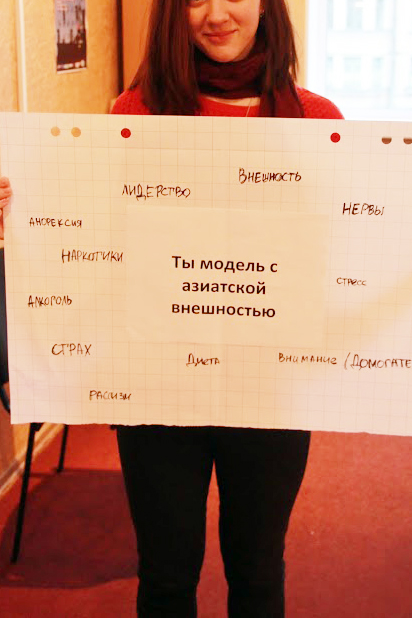 Внешность
Лидерство
Нервы
Анорексия
Наркотики
Ты модель с
азиатской
внешностью
Стресс
Алкоголь
Страх
Диета
Внимание (Домогате
Расизм